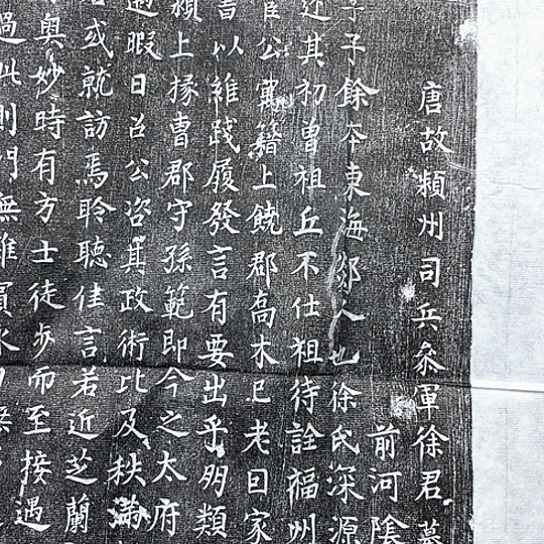 唐故潁州司兵叅軍徐君墓
前河陰
字子餘本東海郯人也徐氏深源
述其初曾祖丘不仕祖待詮福州
官公冀籍上饒郡高木已老回家
書以雖踐履發言有要出乎朋類
潁上掾曹郡守孫範即今之太府
暇日召公咨其政術比及秩滿
或就訪焉聆聽佳言若近芝蘭
奥妙時有方士徒步而至接遇
過此則門無雜賓